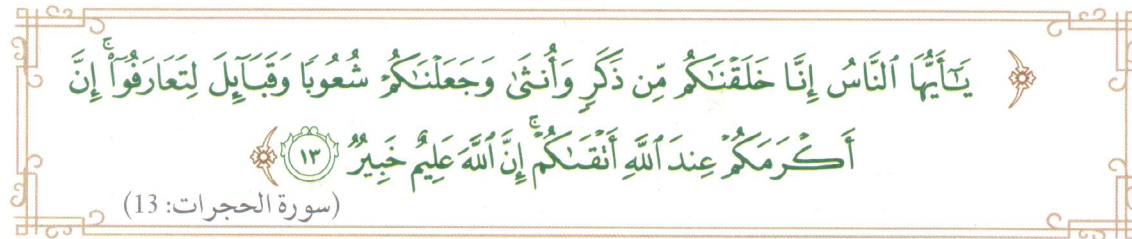 ﴿ يَـٰٓأَيُّهَا ٱلنَّاسُ إِنَّا خَلَقْنَـٰكُم مِّن ذَكَرٍ وَأُنثَىٰ وَجَعَلْنَـٰكُمْ شُعُوبًا وَقَبَآئِلَ لِتَعَارَفُوٓا۟ ۚ إِنَّ
أَكْرَمَكُمْ عِندَ ٱللَّهِ أَتْقَىٰكُمْ ۚ إِنَّ ٱللَّهَ عَلِيمٌ خَبِيرٌ ١٣ ﴾
(سورة الحجرات: 13)